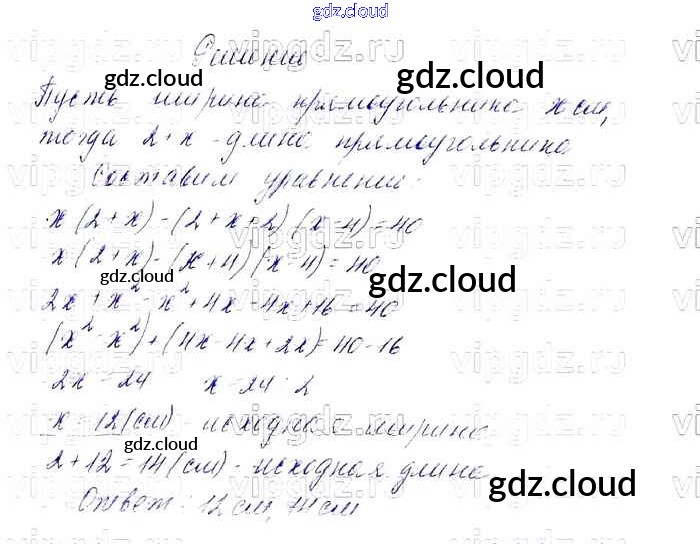 gdz.cloud
Решение
Пусть ширина прямоугольника x см,
тогда 2+x - длина прямоугольника
Составим уравнение:
x(2+x)-(2+x+2)(x-4)=40
x(2+x)-(x+4)(x-4)=40
2x+x²-x²+4x-4x+16=40
(x²-x²)+(4x-4x+2x)=40-16
2x=24 x=24:2
x=12(см) - исходная ширина
2+12=14(см) - исходная длина
Ответ: 12см, 14см
gdz.cloud
gdz.cloud
gdz.cloud
gdz.cloud
gdz.cloud
gdz.cloud
vipgdz.ru